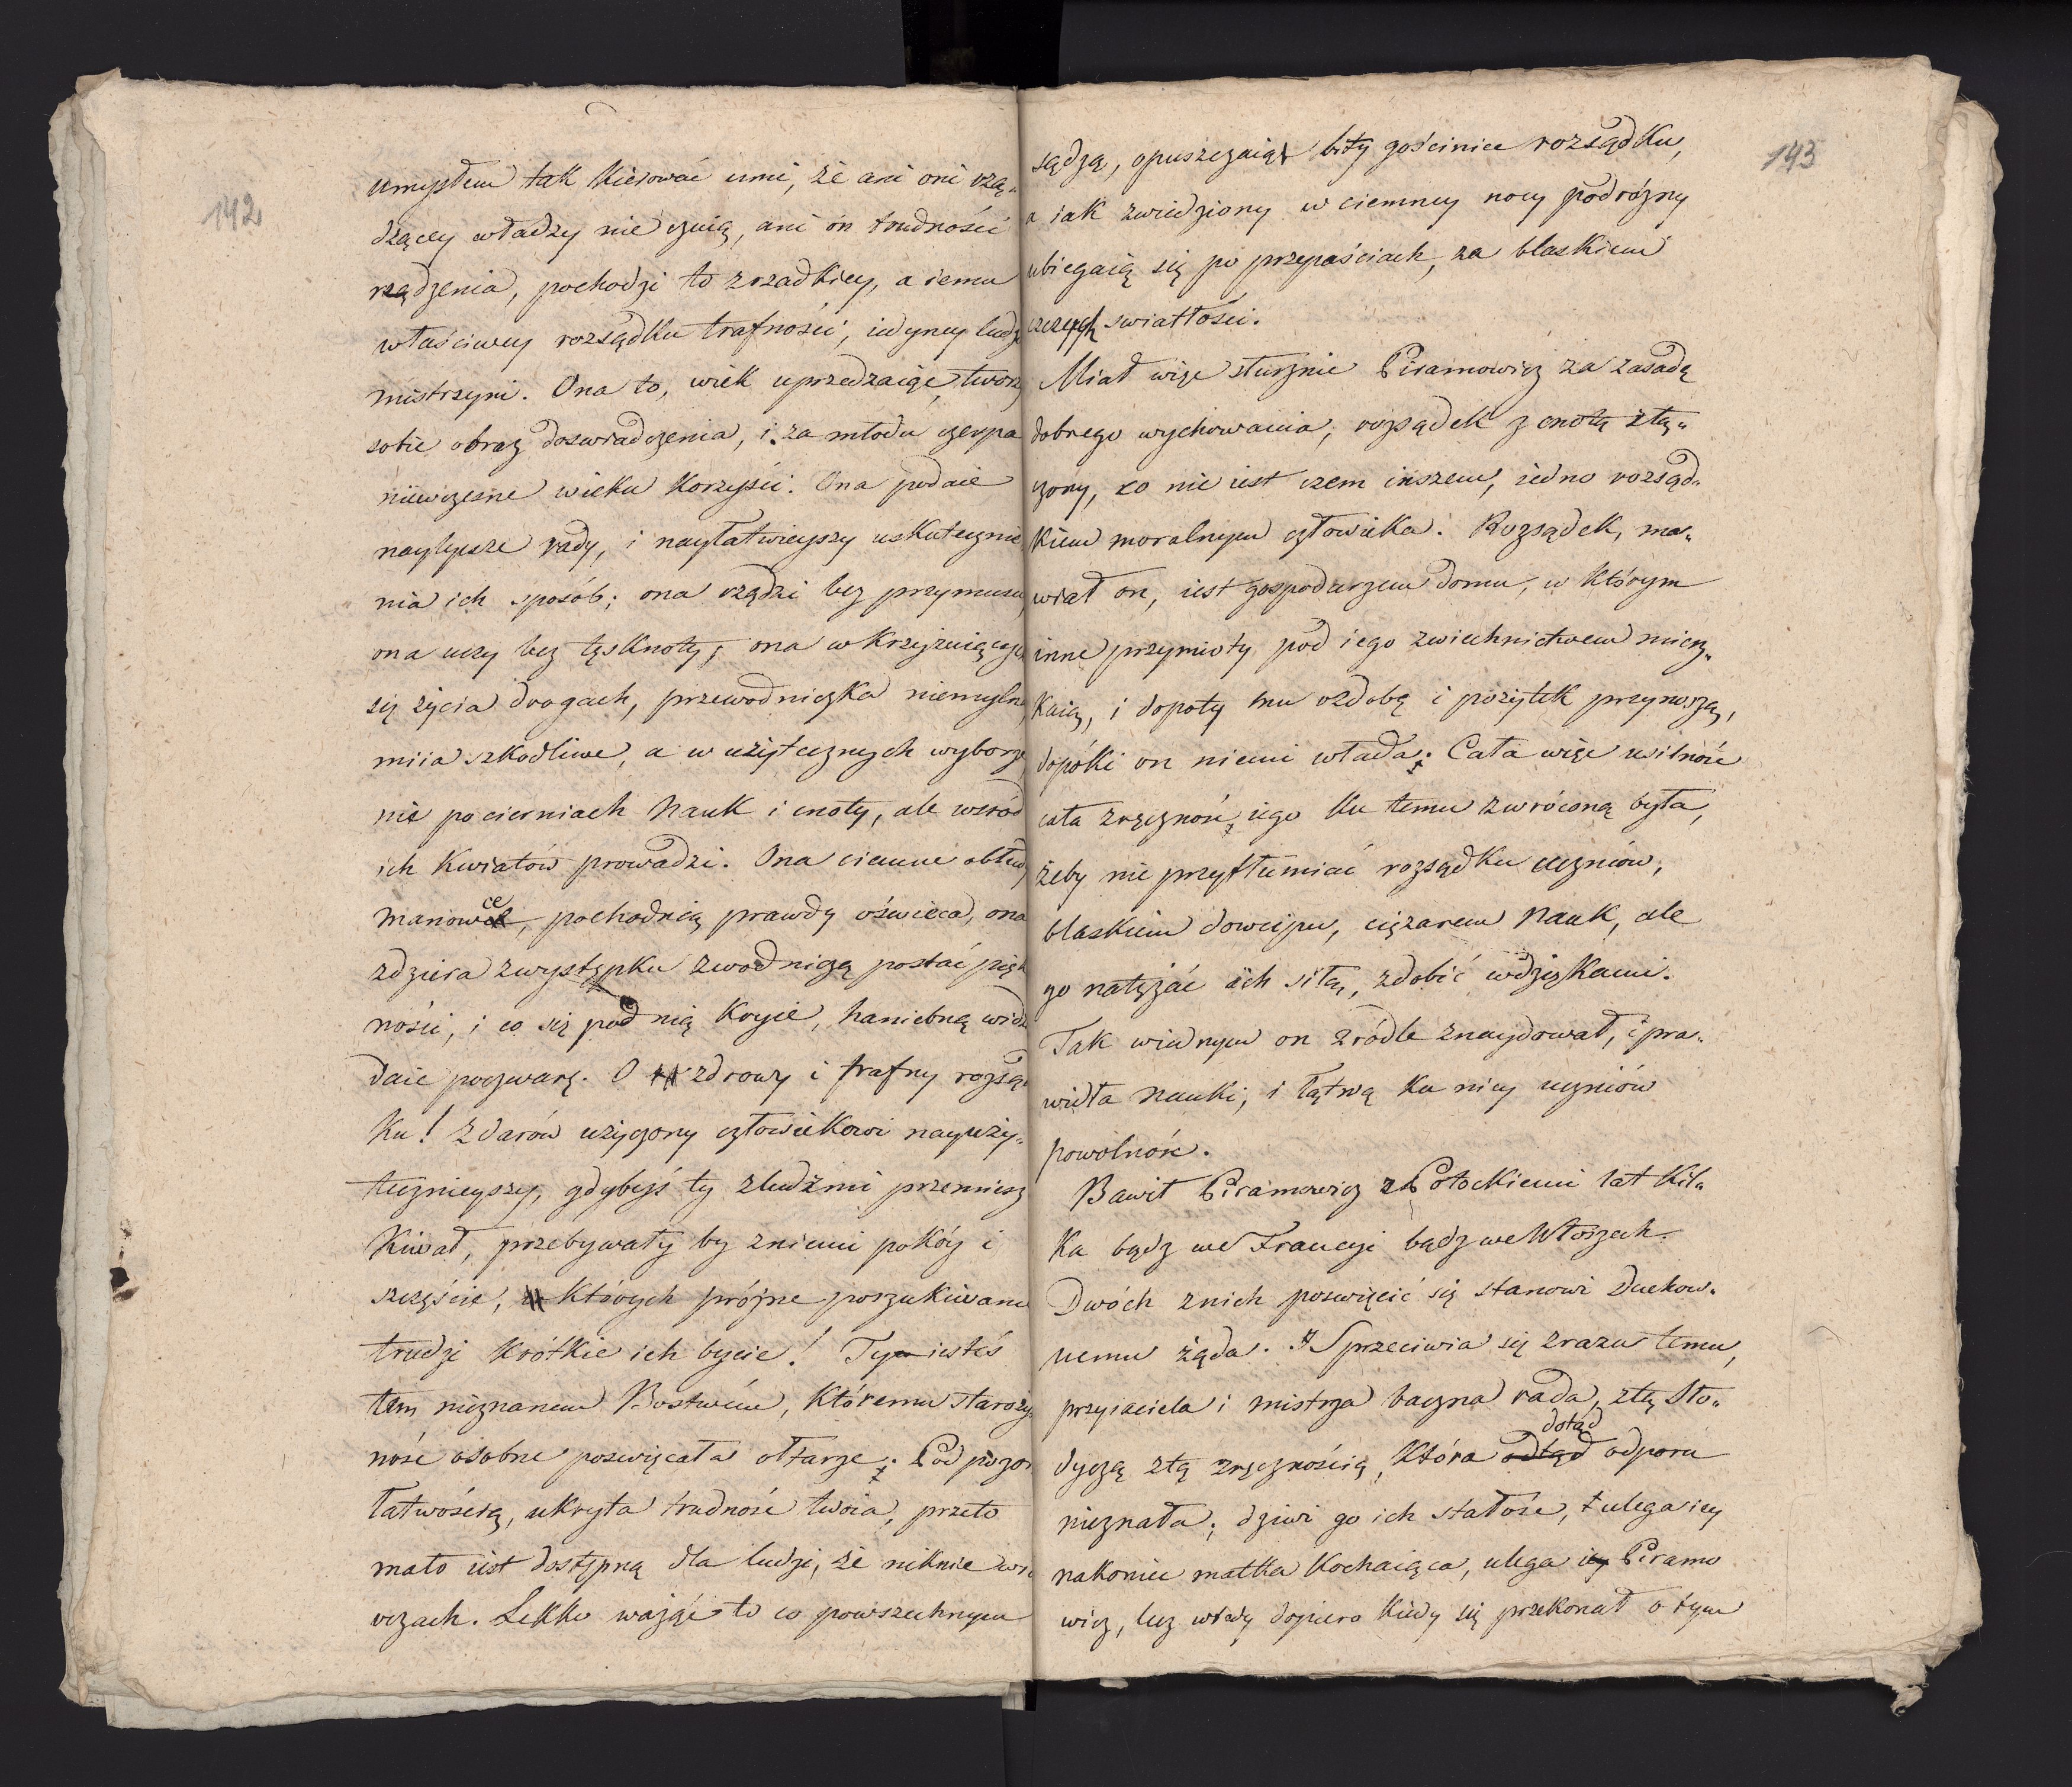 142
umysłem tak kierować umi, że ani oni rzą„
dzącey władzy nie czuią, ani on trudności
rządzenia, pochodzi to z rzadkiey, a iemu
właściwey rozsądku trafności, iedyney ludz
mistrzyni. Ona to, wiek uprzedzaiąc, tworzy
sobie obraz doswiadczenia, i za młodu czerpa
niewczesne wieku korzyści. Ona podaie
naylepsze rady, i nayłatwieyszy uskutecznie
nia ich sposób; ona rządzi bez przymusu,
ona uczy bez tęsknoty; ona w krzyżuiących
się życia drogach, przewodniczka niemylna,
miia szkodliwe, a w użytecznych wyborze
nie po cierniach Nauk i cnoty, ale wsród
ich kwiatów prowadzi. Ona ciemne obłudy
manowce, pochodnią prawdy oświeca, ona
zdziera z występku zwodniczą postać pięk
ności, i co się pod nią kryie, haniebną widz
daie poczwarę. O zdrowy i trafny rozsąd
ku! z darów użyczony człowiekowi nayuży„
tecznieyszy, gdybyś ty z ludźmi przemiesz
kiwał, przebywały by z niemi pokóy i
szczęście, których prózne poszukiwanie
trudzi krótkie ich bycie! Ty iesteś
tem nieznanem Bostwem, któremu staroży
ność osobne poswięcała ołtarze; Pod pozor
łatwością, ukryta trudność twoia, przeto
mało iest dostępną dla ludzi, że niknie w ich
oczach. Lekko ważąc to co powszechnym
143
sądzą, opuszczaiąc bity gościniec rozsądku,
a iak zwiedziony w ciemney nocy podrózny
ubiegaią się po przepaściach, za blaskiem
czczych swiatłości.
Miał więc słusznie Piramowicz za zasadę
dobrego wychowania, rozsądek z cnotą złą„
czony, co nie iest czem inszem, iedno rozsąd„
kiem moralnym człowieka. Rozsądek, ma„
wiał on, iest gospodarzem domu, w którym
inne przymioty pod iego zwierzchnictwem miesz„
kaią, i dopoty mu ozdobę i pożytek przynoszą,
dopóki on niemi włada; Cała więc usilność
cała zręczność iego ku temu zwróconą była,
żeby nie przytłumiać rozsądku uczniów,
blaskiem dowcipu, ciężarem Nauk, ale
go natężać ich siłą, zdobić wdziękami.
Tak w iednym on zródle znaydował, i pra„
widła Nauki, i łatwą ku niey uczniów
powolność.
Bawił Piramowicz z Potockiemi lat kil„
ka bądz we Francyi bądz we Włoszech.
Dwóch z nich poswięcić się stanowi Duchow„
nemu żąda. Sprzeciwia się zrazu temu,
przyiaciela i mistrza baczna rada, z tą sło„
dyczą z tą zręcznością, która odtąd dotąd odporu
nieznała; dziwi go ich stałość, ulega iey
nakoniec matka kochaiąca, ulega iey Piramo
wicz, lecz wtedy dopiero kiedy się przekonał o tym